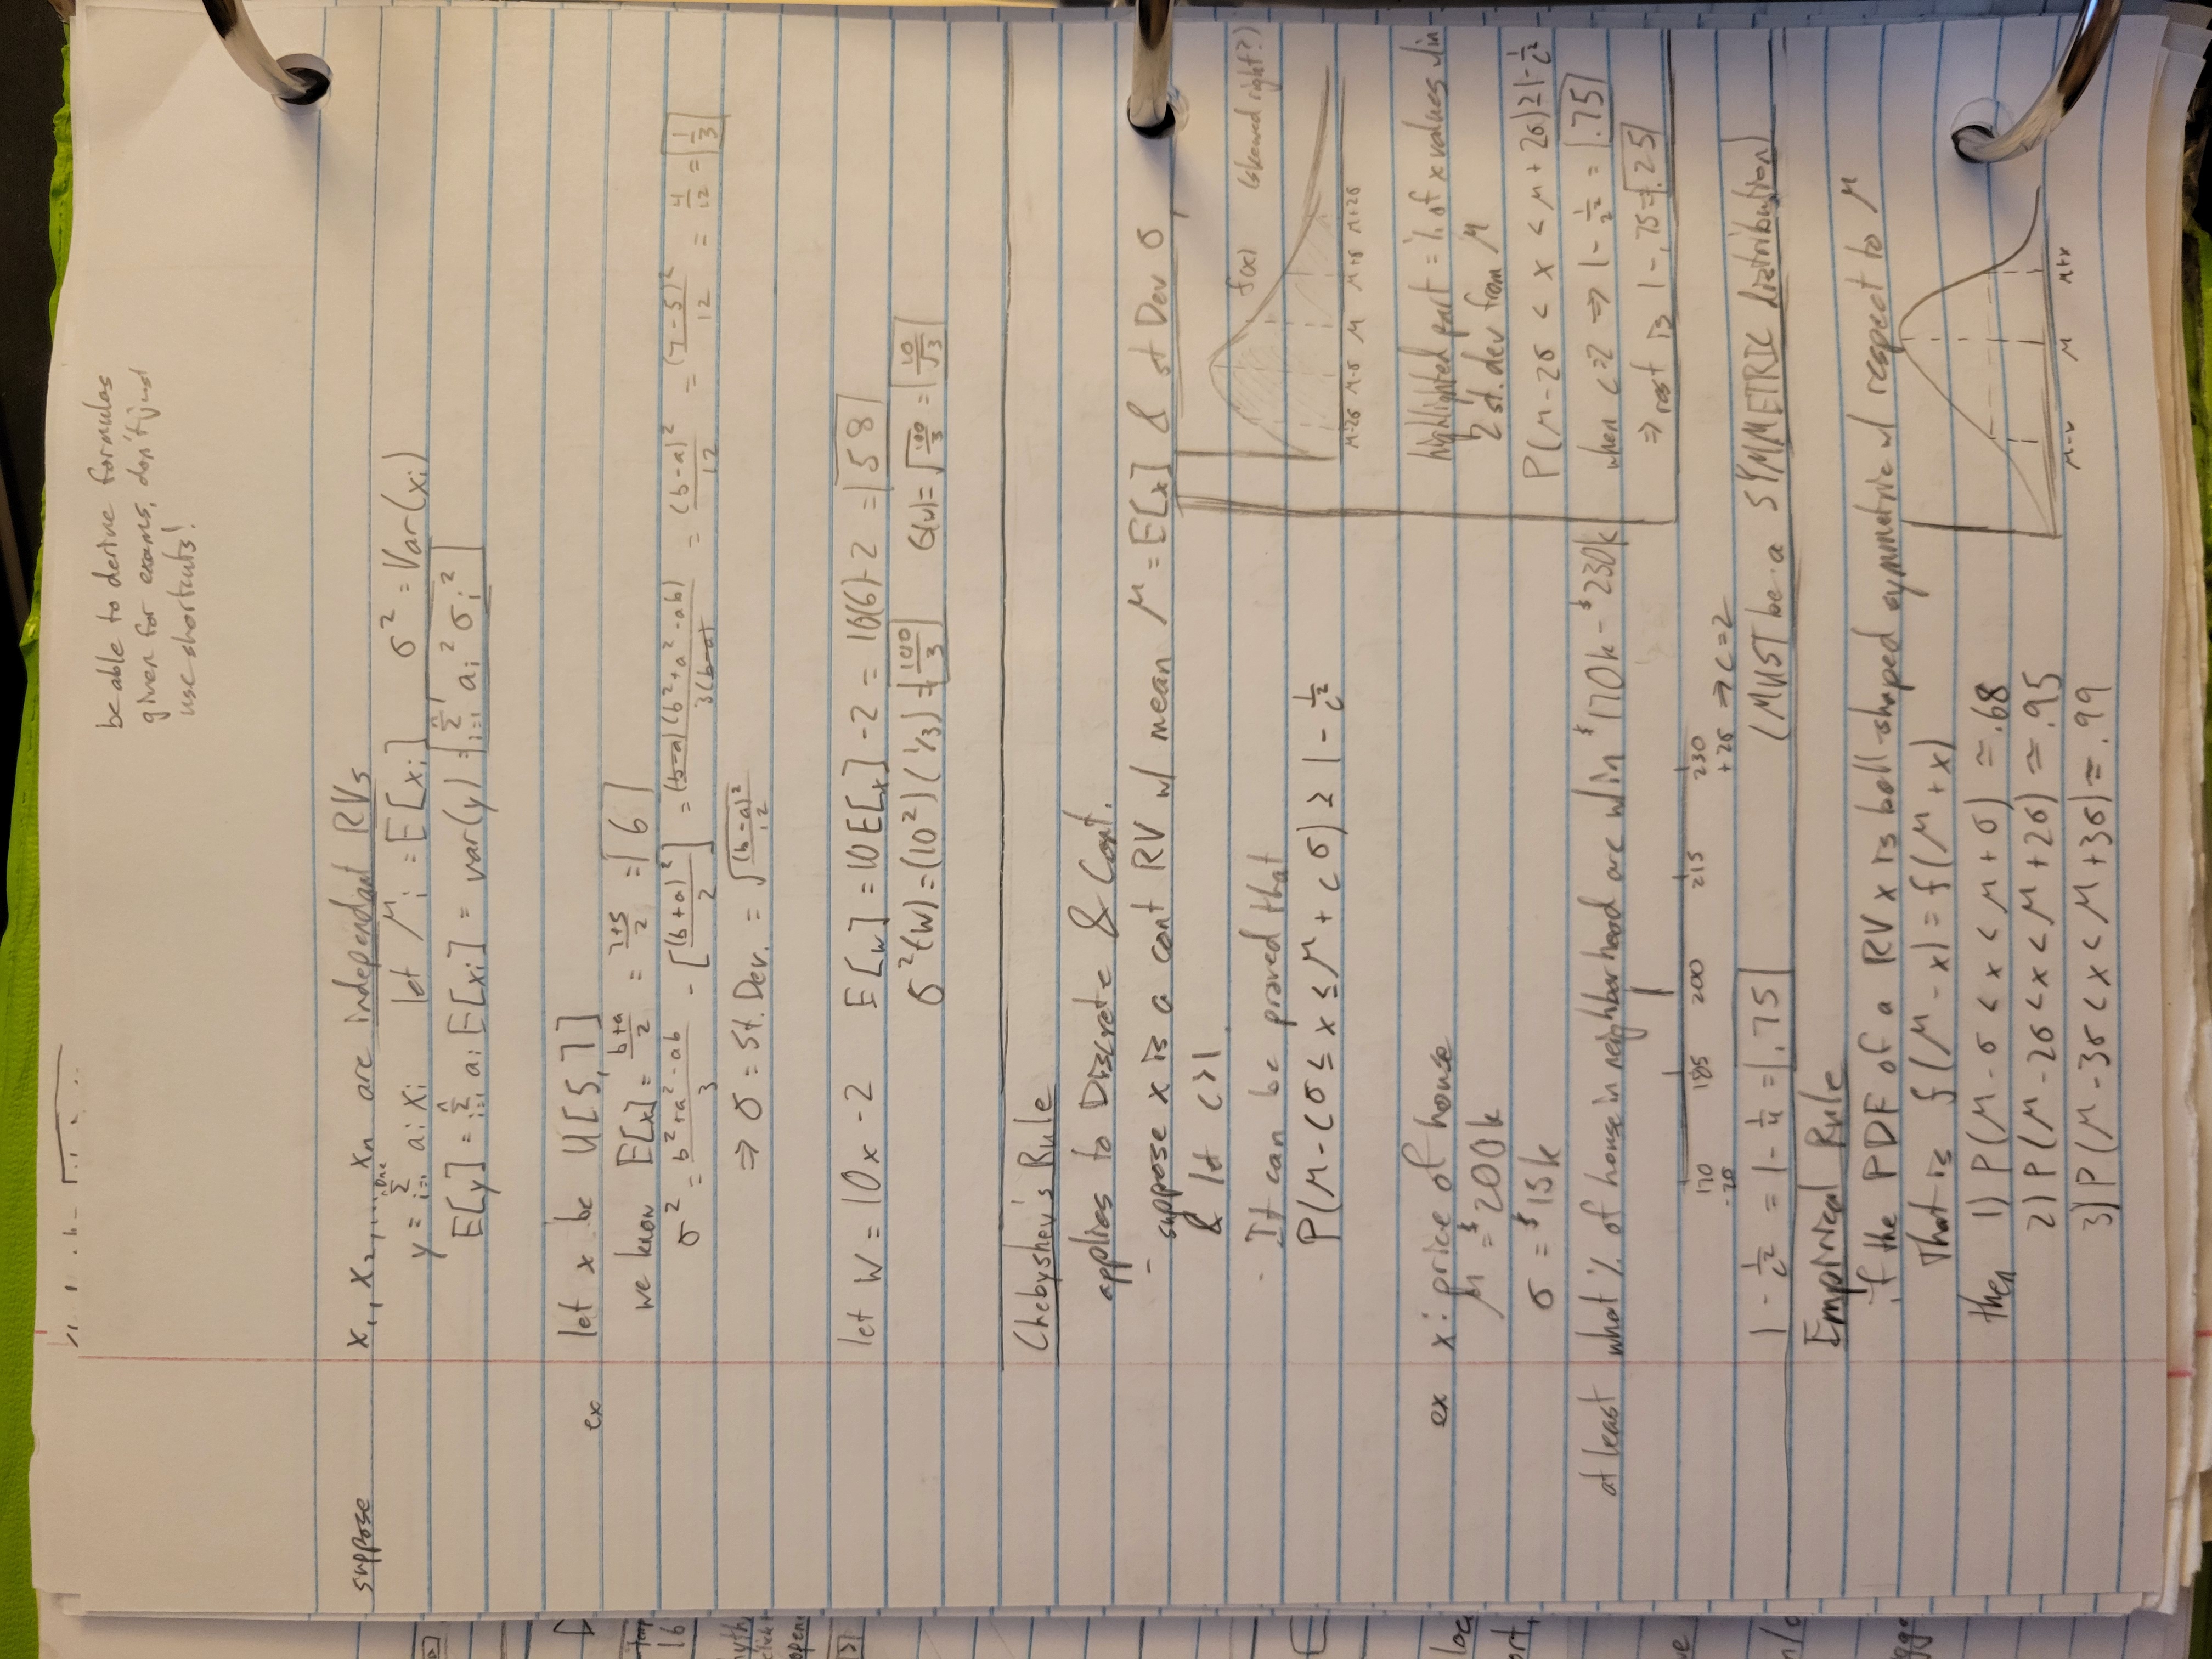 be able to derive formulas
given for exams, don't just
use shortcuts!
suppose x₁, x₂, ... xₙ are independant RVs
y = Σ i=1 aᵢ xᵢ let μᵢ = E[xᵢ] σ² = Var(xᵢ)
E[y] = Σ i=1 n aᵢ E[xᵢ] = var(y) = Σ i=1 n aᵢ² σᵢ²
ex let x be U[5,7]
we know E[x] = b+a/2 = 7+5/2 = 6
σ² = b²+a²-ab/3 - [(b+a)²/2] = (b-a)(b²+a²-ab)/3(b-a) = (b-a)²/12 = (7-5)²/12 = 4/12 = 1/3
⇒ σ = St. Dev. = √(b-a)²/12
let w = 10x - 2 E[w] = 10E[x] - 2 = 10(6)-2 = 58
σ²(w) = (10²)(1/3) = 100/3 σ(w) = √100/3 = 10/√3
Chebyshev's Rule
applies to Discrete & Cont.
- suppose x is a cont RV w/ mean μ = E[x] & st Dev σ,
& let c>1
- It can be proved that
P(μ-cσ ≤ x ≤ μ+cσ) ≥ 1 - 1/c²
f(x) (skewed right?)
μ-2σ μ-σ μ μ+σ μ+2σ
highlighted part = % of x values w/in
2 st. dev from μ
P(μ-2σ < x < μ+2σ) ≥ 1-1/c²
when c=2 ⇒ 1 - 1/2² = .75
⇒ rest is 1-.75 = .25
ex x: price of house
μ = $200k
σ = $15k
at least what % of house in neighborhood are w/in $170k - $230k
170 185 200 215 230
-2σ +2σ ⇒ c=2
1 - 1/c² = 1 - 1/4 = .75 (MUST be a SYMMETRIC distribution)
Empirical Rule
if the PDF of a RV x is bell-shaped symmetric w/ respect to μ
That is f(μ-x) = f(μ+x)
then 1) P(μ-σ < x < μ+σ) ≃ .68
2) P(μ-2σ < x < μ+2σ) ≃ .95
3) P(μ-3σ < x < μ+3σ) ≃ .99
μ-x μ μ+x